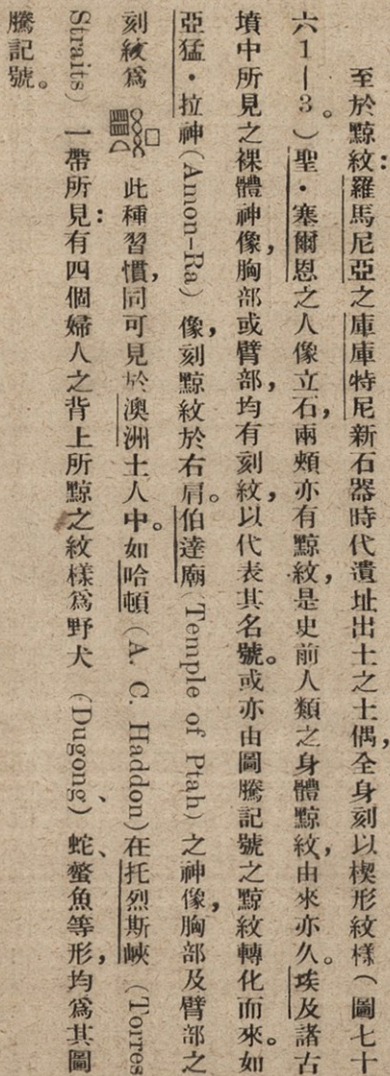 至於黥紋：羅馬尼亞之庫庫特尼新石器時代遺址出土之土偶，全身刻以楔形紋樣（圖七十
六1—3。）聖・塞爾恩之人像立石，兩頰亦有黥紋，是史前人類之身體黥紋，由來亦久。埃及諸古
墳中所見之裸體神像，胸部或臂部，均有刻紋，以代表其名號。或亦由圖騰記號之黥紋轉化而來。如
亞猛・拉神（Amon-Ra）像，刻黥紋於右肩。伯達廟（Temple of Ptah）之神像，胸部及臂部之
刻紋爲 此種習慣，同可見於澳洲土人中。如哈頓（A. C. Haddon）在托烈斯峽（Torres
Straits）一帶所見：有四個婦人之背上所黥之紋樣爲野犬（Dugong）、蛇、螫魚等形，均爲其圖
騰記號。